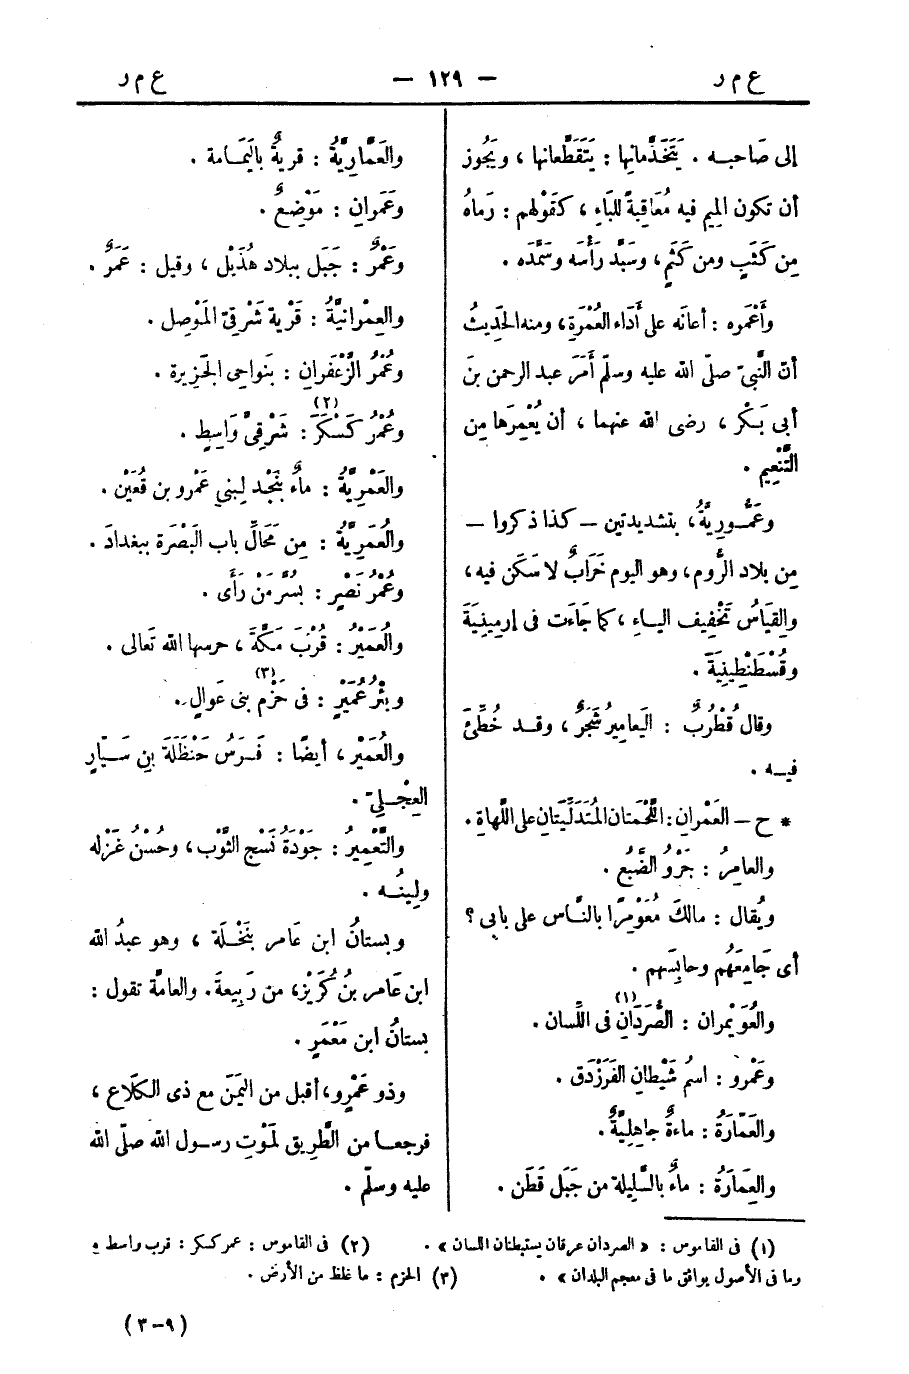 ع م ر — ١٢٩ — ع م ر
إلى صَاحبه . يَتَخَذَّمانِها : يَتَقَطَّعانها ، ويَجُوز
أن تكون المِيم فيه مُعَاقِبةً للبَاءِ ، كقَوْلهم : رَماهُ
مِن كَثَبٍ ومن كَثَمٍ ، وسَبَّد رَأْسَه وسَمَّدَه .
وأَعْمَره : أعانَه على أَدَاء العُمْرَةِ ، ومنه الحَدِيثُ
أنّ النَّبيّ صلّى الله عليه وسلّم أَمَرَ عبد الرحمن بنَ
أبى بَكْر ، رضى الله عنهما ، أن يُعْمِرَها مِن
التَّنْعِيم .
وعَمُّورِيَّةُ ، بتشديدتين — كذا ذكروا —
مِن بلاد الرُّوم ، وهو اليوم خَرَابٌ لا سَكَن فيه ،
والقِيَاسُ تَخْفِيف اليـاء ، كما جَاءَت فى إرمِينِيَةَ
وقُسْطَنْطِينِيَةَ .
وقال قُطْرُبٌ : اليَعامِيرُ شَجَرٌ ، وقـد خُطِّئَ
فيـه .
* ح — العَمْرانِ : اللَّحْمَتان المُتَدَلِّيَتَان على اللَّهاةِ .
والعامِرُ : جَرْوُ الضَّبُع .
ويُقال : مالكَ مُعَوْمِرًا بالنَّاس على بابى ؟
أى جَامِعَهُم وحابِسَهم .
والعُوَيْمِران : الصُّرَدَانِ (١) فى اللِّسان .
وعَمْرو : اسمُ شَيْطانِ الفَرَزْدَق .
والعَمّارَةُ : ماءةٌ جاهِلِيَّةٌ .
والعِمَارَةُ : ماءٌ بالسَّلِيلة من جَبَل قَطَن .
والعَمَّارِيَّةُ : قريةٌ باليَمَامة .
وعَمَرانِ : مَوْضِعٌ .
وعَمْرٌ : جَبَل ببلاد هُذَيْل ، وقيل : عَمَرٌ .
والعِمْرانيَّةُ : قَرْية شَرْقِىّ المَوْصِل .
وعُمْرُ الزَّعْفَران : بنَواحِى الجَزِيرة .
وعُمْرُ كَسْكَرَ (٢) : شَرْقِىَّ وَاسِطٍ .
والعَمْرِيَّةُ : ماءٌ بنَجْد لِبنى عَمْرو بن قُعَيْن .
والعُمَرِيَّةُ : مِن مَحَالِّ باب البَصْرَة ببغدادَ .
وعُمْرُ نَصْرٍ : بسُرَّ مَنْ رَأَى .
والعُمَيْرُ : قُرْبَ مَكَّةَ ، حرسها الله تعالى .
وبِئْرُ عُمَيْرٍ : فى حَزْم (٣) بنى عَوالٍ .
والعُمَيْر ، أيضًا : فَـرَسُ حَنْظَلَةَ بنِ سَـيّارٍ
العِجْـلِىّ .
والتَّعْمِيرُ : جَوْدَةُ نَسْجِ الثَّوْب ، وحُسْنُ غَزْله
ولِينُـه .
وبستانُ ابن عَامر بنَخْـلَة ، وهو عبدُ الله
ابن عَامر بنُ كُرَيْز ، من رَبِيعةَ . والعامّة تقول :
بستانُ ابن مَعْمَرٍ .
وذو عَمْرٍو ، أقبل من اليَمَن مع ذى الكَلَاع ،
فرجعـا من الطَّرِيق لِمَوْتِ رسـول الله صلّى الله
عليه وسلّم .
(١) فى القاموس : « الصردان عرقان يستبطنان اللسان » . (٢) فى القاموس : عمر كسكر : قرب واسط و
وما فى الأصول يوافق ما فى معجم البلدان » . (٣) الحزم : ما غلظ من الأرض .
(٩–٣)